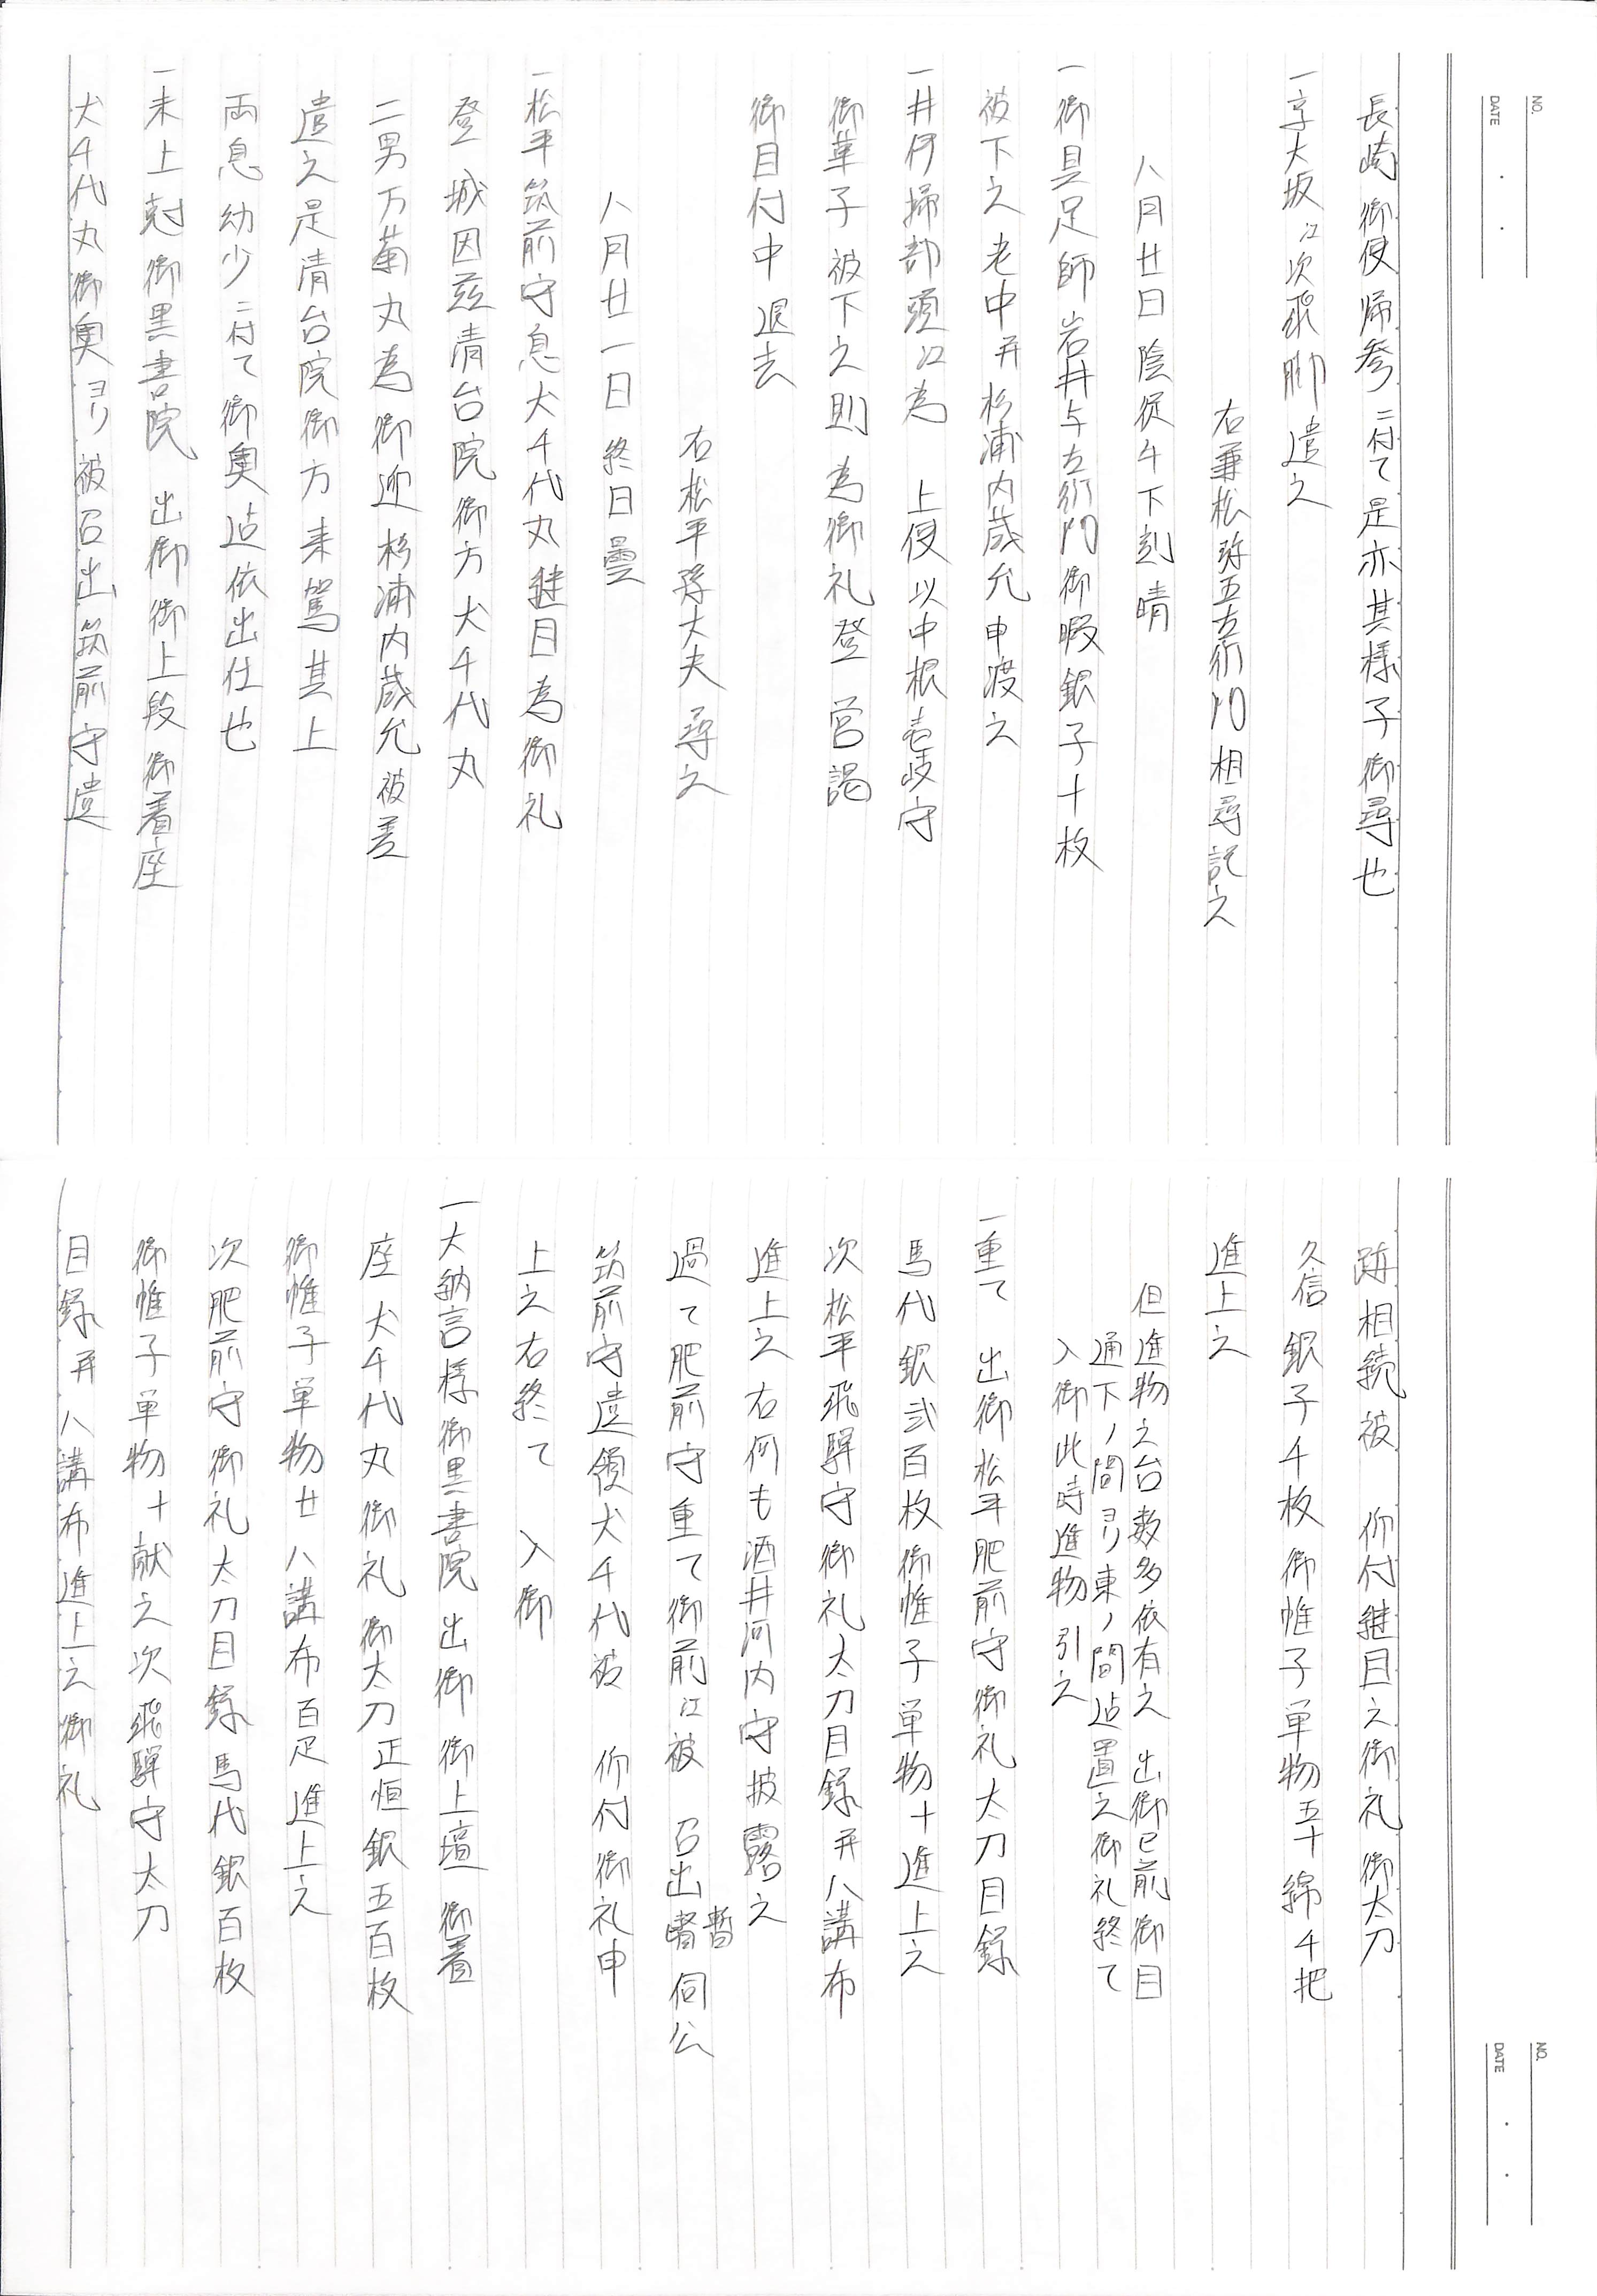 NO.
DATE
長崎御使帰参ニ付て是亦其様子御尋也
一京大坂江次飛脚遣之
右兼松弥五左衛門相尋記之
八月廿日陰従午下刻晴
一御具足師岩井与左衛門御暇銀子十枚
被下之老中并杉浦内蔵允申渡之
一井伊掃部頭江為　上使以中根壱岐守
御菓子被下之則為御礼登　営謁
御目付中退去
右松平孫大夫尋之
八月廿一日終日曇
一松平筑前守息犬千代丸継目為御礼
登　城因茲清台院御方犬千代丸
二男万菊丸為御迎杉浦内蔵允被差
遣之是清台院御方来駕其上
両息幼少ニ付て御奥迠依出仕也
一未上刻御黒書院　出御御上段御着座
犬千代丸御奥ヨリ被召出筑前守遺
跡相続被　仰付継目之御礼御太刀
久信銀子千枚御帷子単物五十綿千把
進上之
但進物之台数多依有之　出御已前御目
通下ノ間ヨリ東ノ間迠置之御礼終て
入御此時進物引之
一重て　出御松平肥前守御礼太刀目録
馬代銀弐百枚御帷子単物十進上之
次松平飛騨守御礼太刀目録并八講布
進上之右何も酒井河内守披露之
過て肥前守重て御前江被　召出暫伺公
暫
筑前守遺領犬千代被　仰付御礼申
上之右終て　入御
一大納言様御黒書院出御　御上壇　御着
座犬千代丸御礼御太刀正恒銀五百枚
御帷子単物廿八講布百疋進上之
次肥前守御礼太刀目録馬代銀百枚
御帷子単物十献之次飛騨守太刀
目録并八講布進上之御礼
NO.
DATE